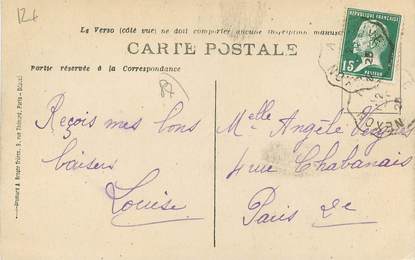 121
Le Verso (côté vue) ne doit comporter aucune inscription manus
CARTE POSTALE
Partie réservée à la Correspondance
87
RÉPUBLIQUE FRANÇAISE
15c
PASTEUR
Reçois mes bons
baisers
Louise
Melle Angèle
4 rue Chabanais
Paris 2e